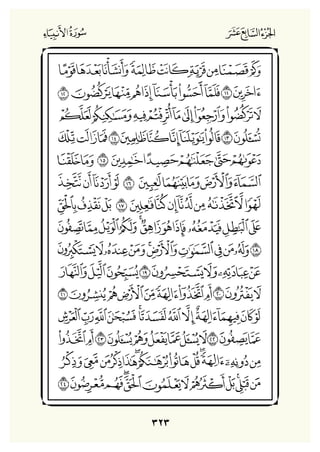 الجزء السابع عشر سورة الأنبياء
وَكَمْ قَصَمْنَا مِن قَرْيَةٍ كَانَتْ ظَالِمَةً وَأَنشَأْنَا بَعْدَهَا قَوْمًا
ءَاخَرِينَ ١١ فَلَمَّآ أَحَسُّوا۟ بَأْسَنَآ إِذَا هُم مِّنْهَا يَرْكُضُونَ ١٢
لَا تَرْكُضُوا۟ وَٱرْجِعُوٓا۟ إِلَىٰ مَآ أُتْرِفْتُمْ فِيهِ وَمَسَٰكِنِكُمْ لَعَلَّكُمْ
تُسْـَٔلُونَ ١٣ قَالُوا۟ يَٰوَيْلَنَآ إِنَّا كُنَّا ظَٰلِمِينَ ١٤ فَمَا زَالَت تِّلْكَ
دَعْوَىٰهُمْ حَتَّىٰ جَعَلْنَٰهُمْ حَصِيدًا خَٰمِدِينَ ١٥ وَمَا خَلَقْنَا
ٱلسَّمَآءَ وَٱلْأَرْضَ وَمَا بَيْنَهُمَا لَٰعِبِينَ ١٦ لَوْ أَرَدْنَآ أَن نَّتَّخِذَ
لَهْوًا لَّٱتَّخَذْنَٰهُ مِن لَّدُنَّآ إِن كُنَّا فَٰعِلِينَ ١٧ بَلْ نَقْذِفُ بِٱلْحَقِّ
عَلَى ٱلْبَٰطِلِ فَيَدْمَغُهُۥ فَإِذَا هُوَ زَاهِقٌ ۚ وَلَكُمُ ٱلْوَيْلُ مِمَّا تَصِفُونَ
١٨ وَلَهُۥ مَن فِى ٱلسَّمَٰوَٰتِ وَٱلْأَرْضِ ۚ وَمَنْ عِندَهُۥ لَا يَسْتَكْبِرُونَ
عَنْ عِبَادَتِهِۦ وَلَا يَسْتَحْسِرُونَ ١٩ يُسَبِّحُونَ ٱلَّيْلَ وَٱلنَّهَارَ
لَا يَفْتُرُونَ ٢٠ أَمِ ٱتَّخَذُوٓا۟ ءَالِهَةً مِّنَ ٱلْأَرْضِ هُمْ يُنشِرُونَ ٢١
لَوْ كَانَ فِيهِمَآ ءَالِهَةٌ إِلَّا ٱللَّهُ لَفَسَدَتَا ۚ فَسُبْحَٰنَ ٱللَّهِ رَبِّ ٱلْعَرْشِ
عَمَّا يَصِفُونَ ٢٢ لَا يُسْـَٔلُ عَمَّا يَفْعَلُ وَهُمْ يُسْـَٔلُونَ ٢٣ أَمِ ٱتَّخَذُوا۟
مِن دُونِهِۦٓ ءَالِهَةً ۖ قُلْ هَاتُوا۟ بُرْهَٰنَكُمْ ۖ هَٰذَا ذِكْرُ مَن مَّعِىَ وَذِكْرُ
مَن قَبْلِى ۗ بَلْ أَكْثَرُهُمْ لَا يَعْلَمُونَ ٱلْحَقَّ ۖ فَهُم مُّعْرِضُونَ ٢٤
٣٢٣